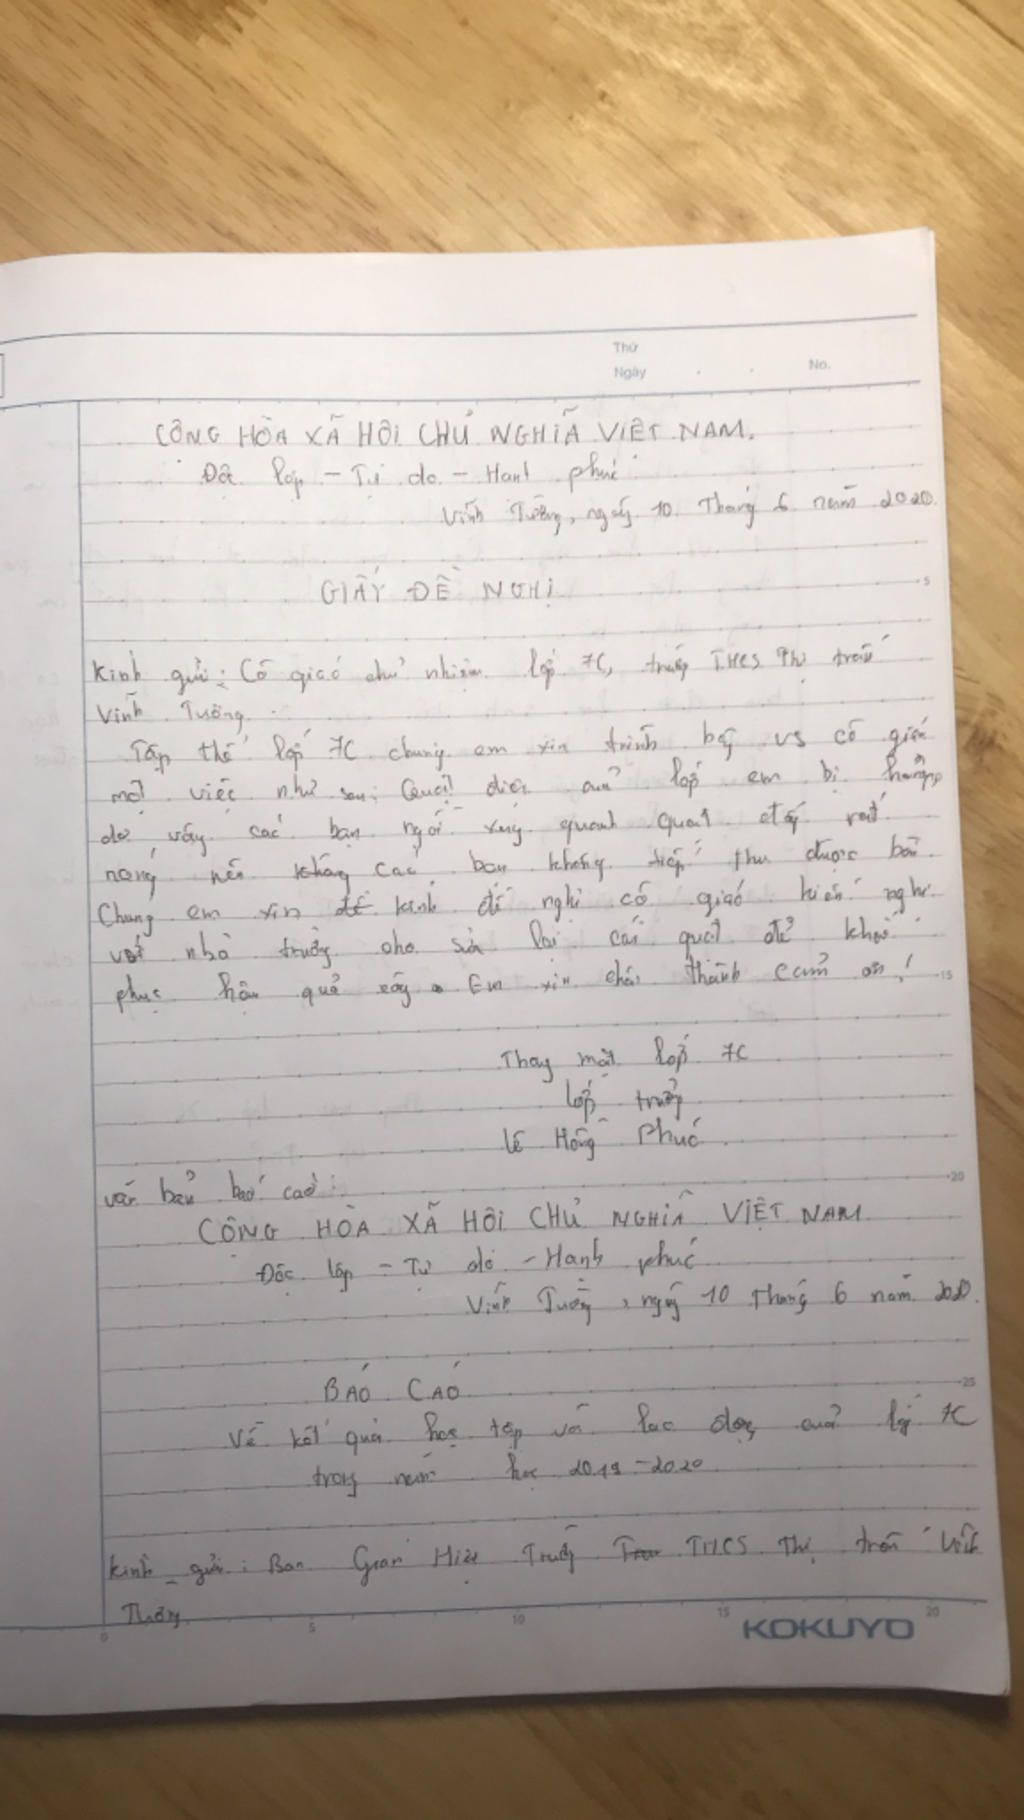 Thứ
Ngày No.
CÔNG HÒA XÃ HÔI CHỦ NGHĨA VIỆT NAM.
Độc lập - Tự do - Hanh phúc
Vĩnh Tường, ngày 10 Tháng 6 năm 2020.
GIẤY ĐỀ NGHỊ
5
Kính gửi: Cô giáo chủ nhiệm lớp 7C, trường THCS Thị trấn
Vĩnh Tường.
Tập thể lớp 7C chúng em xin trình bày vs cô giáo
một việc như sau: Quạt điện của lớp em bị hỏng
do vậy các bạn ngồi xung quanh quạt đấy rất
nóng nên không các bạn không tiếp thu được bài.
Chúng em xin kính đề nghị cô giáo kiến nghị
với nhà trường cho sửa lại cái quạt để khắc
phục hậu quả này Em xin chân thành cảm ơn!
15
Thay mặt lớp 7C
lớp trưởng
Lê Hồng Phúc
văn bản báo cáo:
20
CỘNG HÒA XÃ HÔI CHỦ NGHĨA VIỆT NAM
Độc lập - Tự do - Hanh phúc
Vĩnh Tường, ngày 10 Tháng 6 năm 2020.
BÁO CÁO
25
Về kết quả học tập và lao động của lớp 7C
trong năm học 2019-2020
Kính gửi: Ban Giám Hiệu Trường THCS Thị trấn Vĩnh
Tường
0 5 10 15 20
KOKUYO